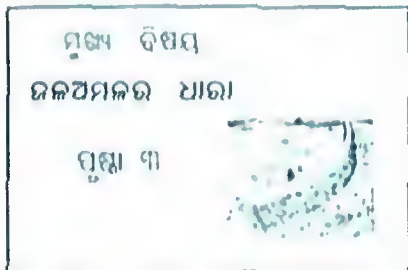 ମୁଖ୍ୟ ବିଷୟ
ଜଳଅମଳର ଧାରା
ପୃଷ୍ଠା ୩